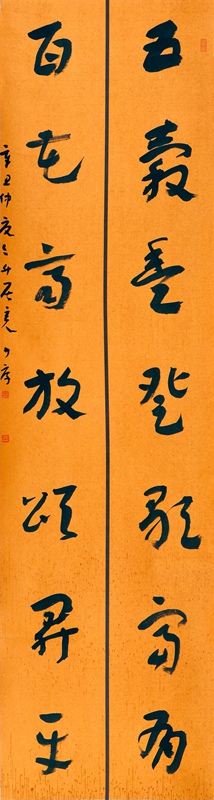 五穀豐登歌富有
百花齊放頌昇平
辛丑仲夏